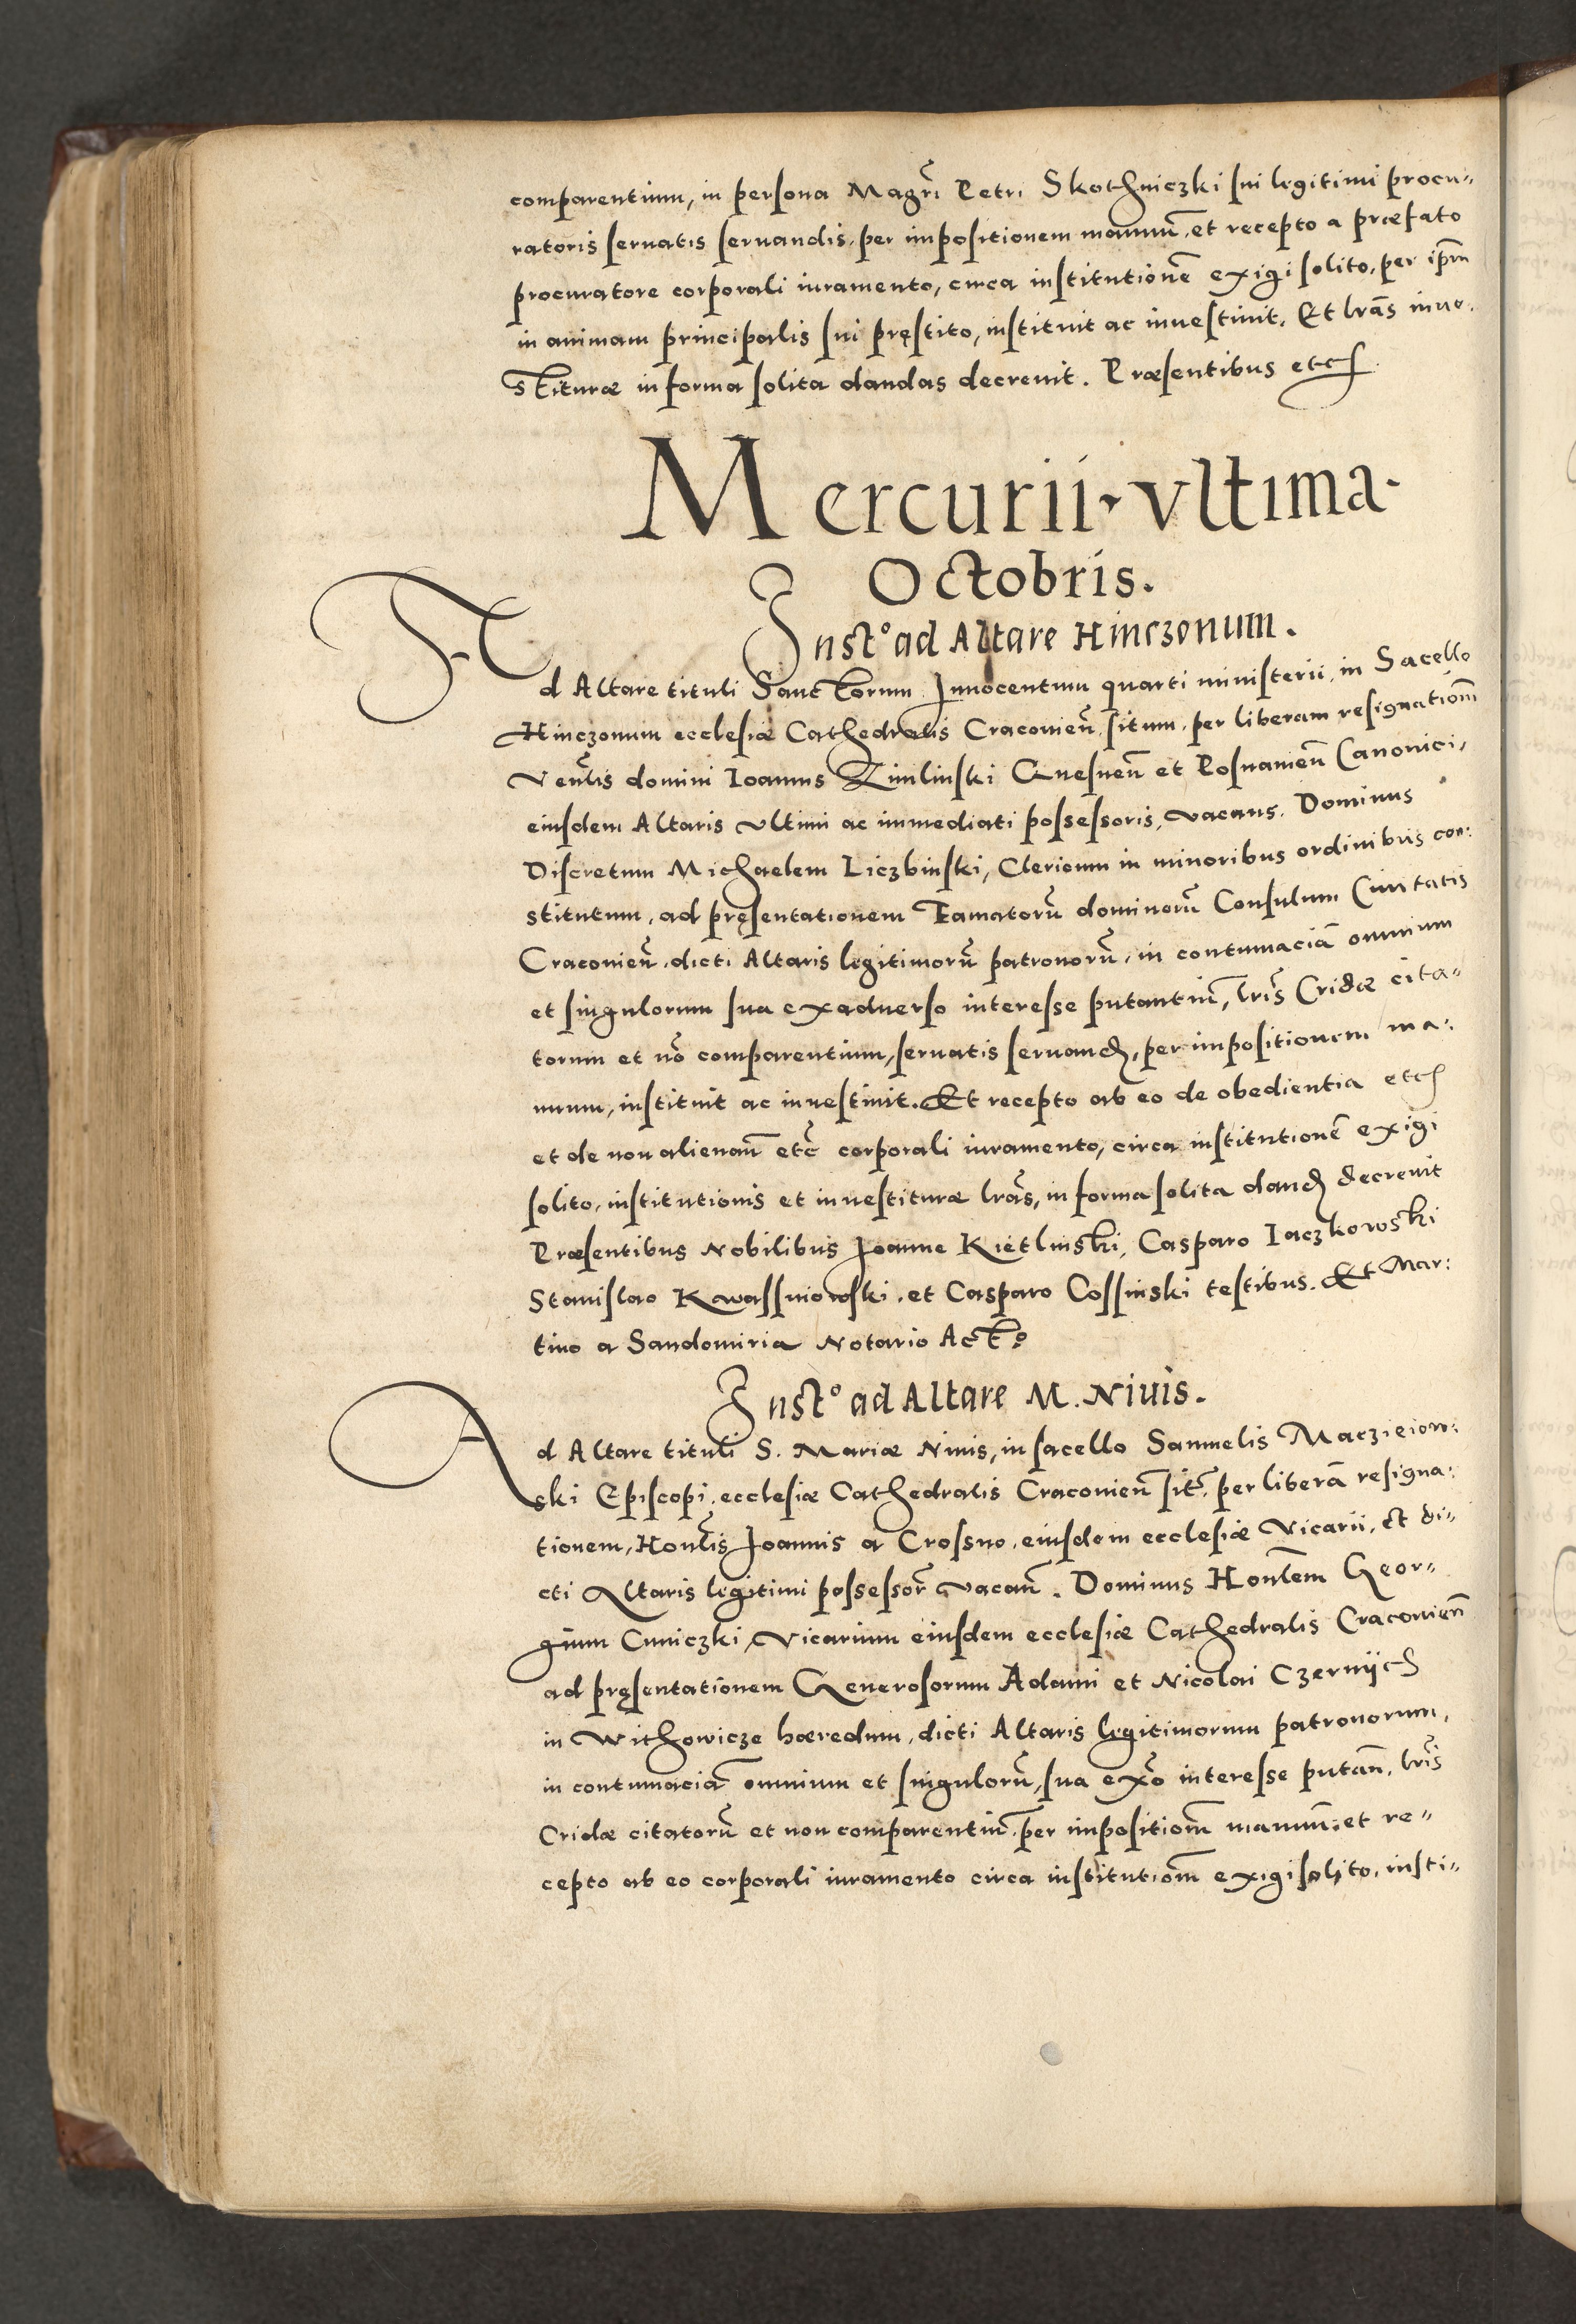 comparentium, in persona Magr̃i Petri Skothniczki sui legitimi procu-
ratoris seruatis seruandis, per impositionem manuũ, et recepto a præfato
procuratore corporali iuramento, circa institutionẽ exigi solito, per ip̃m
in animam principalis sui pręstito, instituit ac inuestiuit. Et lr̃as inue-
stituræ in forma solita dandas decreuit. Præsentibus etc
Mercurii vltima
Octobris.
Inst° ad Altare Hinczonum.
Ad Altare tituli Sanctorum Innocentum quarti ministerii, in Sacello
Hinczonum ecclesiæ Cathedralis Cracovieñ situm, per liberam resignatioñm
Veñlis domini Ioannis Zimlinski Gnesneñ et Posnanieñ Canonici,
eiusdem Altaris vltimi ac immediati possessoris, vacans. Dominus
Discretum Michaelem Liczbinski, Clericum in minoribus ordinibus con:
stitutum, ad pręsentationem Famatorũ dominorũ Consulum Ciuitatis
Cracovieñ, dicti Altaris legitimorũ patronorũ, in contumaciã omnium
et singulorum sua exaduerso interesse putantiũ, lr̃is Cridæ cita-
torum et nõ comparentium, seruatis seruand, per impositionem ma:
nuum, instituit ac inuestiuit. Et recepto ab eo de obedientia etc
et de non alienañ etc̃ corporali iuramento, circa institutionẽ exigi
solito, institutionis et inuestituræ lr̃as, in forma solita dand decreuit
Præsentibus Nobilibus Joanne Kietlinski, Casparo Iaczkowski
Stanislao Kwassniowski, et Casparo Cossinski testibus. Et Mar:
tino a Sandomiria Notario Act
Inst° ad Altare M. Niuis.
Ad Altare tituli S. Mariæ Niuis, in sacello Samuelis Maczieiow:
ski Episcopi, ecclesiæ Cathedralis Cracovieñ sit̃, per liberã resigna:
tionem, Hoñlis Joannis a Crossno, eiusdem ecclesiæ Vicarii, et di-
cti Altaris legitimi possessor̃ vacañ. Dominus Hoñlem Geor-
gium Cuniczki, Vicarium eiusdem ecclesiæ Cathedralis Cracovieñ
ad pręsentationem Generosorum Adami et Nicolai Czernijch
in Withowicze hæredum, dicti Altaris legitimorum patronorum,
in contumaciã omnium et singulorũ, sua ex̃o interesse putañ, lr̃is
Cridæ citatorũ et non comparentiũ, per impositioñm manuũ, et re-
cepto ab eo corporali iuramento circa institutioñm exigi solito, insti-